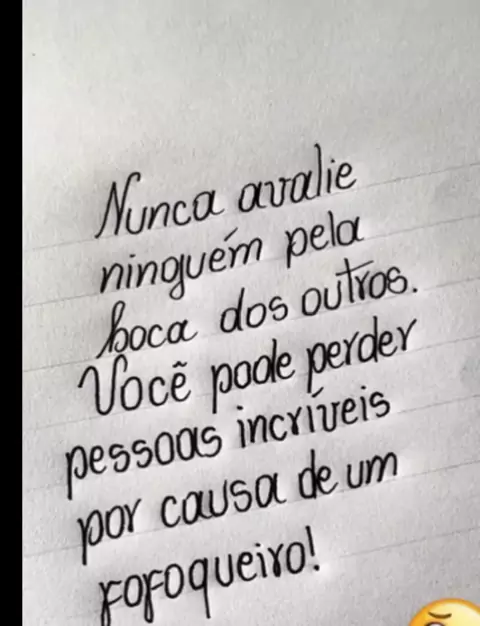 Nunca avalie
ninguém pela
boca dos outros.
Você pode perder
pessoas incríveis
por causa de um
fofoqueiro!